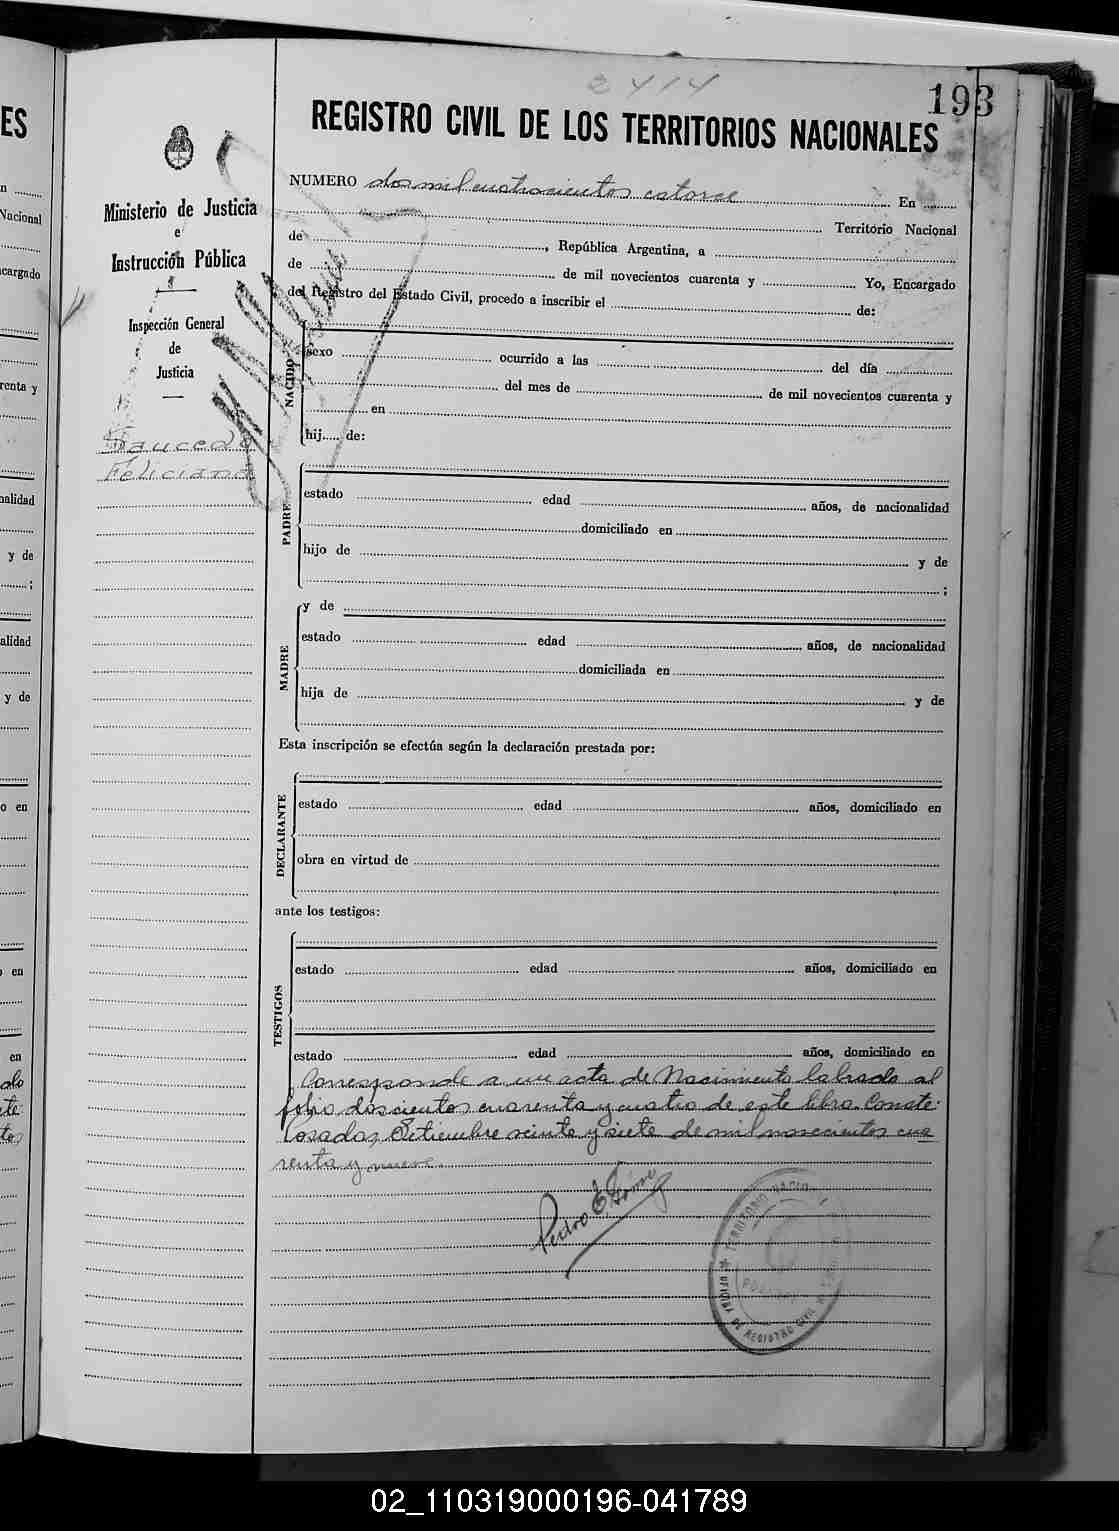 2414
193
REGISTRO CIVIL DE LOS TERRITORIOS NACIONALES
Ministerio de Justicia
e
Instrucción Pública
Inspección General
de
Justicia
Saucedo
Feliciano
NUMERO dos mil cuatrocientos catorce En
Territorio Nacional
de , República Argentina, a
de de mil novecientos cuarenta y Yo, Encargado
del Registro del Estado Civil, procedo a inscribir el de:
NACIDO
sexo ocurrido a las del día
del mes de de mil novecientos cuarenta y
en
hij..... de:
PADRE
estado edad años, de nacionalidad
domiciliado en
hijo de y de
;
MADRE
y de
estado edad años, de nacionalidad
domiciliada en
hija de y de
Esta inscripción se efectúa según la declaración prestada por:
DECLARANTE
estado edad años, domiciliado en
obra en virtud de
ante los testigos:
TESTIGOS
estado edad años, domiciliado en
estado edad años, domiciliado en
Corresponde a un acta de Nacimiento labrada al
folio doscientos cuarenta y cuatro de este libro. Conste:
Posadas, Setiembre veinte y siete de mil novecientos cua
renta y nueve.
Pedro E.
TERRITORIO NACIONAL
OFICINA DE REGISTRO CIVIL
ES
Nacional
encargado
renta y
nalidad
y de
;
alidad
y de
o en
en
en
02_110319000196-041789